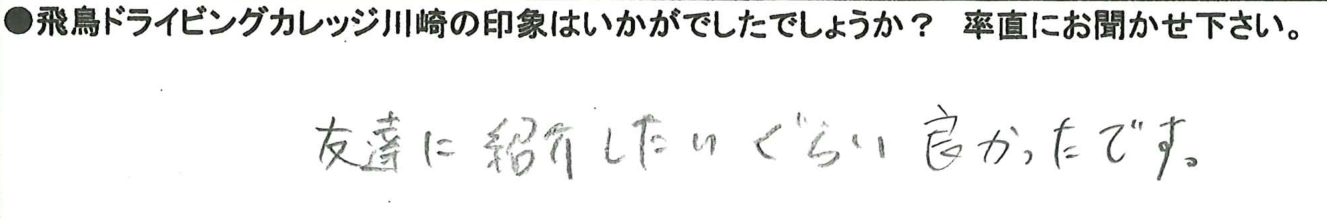 ●飛鳥ドライビングカレッジ川崎の印象はいかがでしたでしょうか？ 率直にお聞かせ下さい。
友達に紹介したいぐらい良かったです。